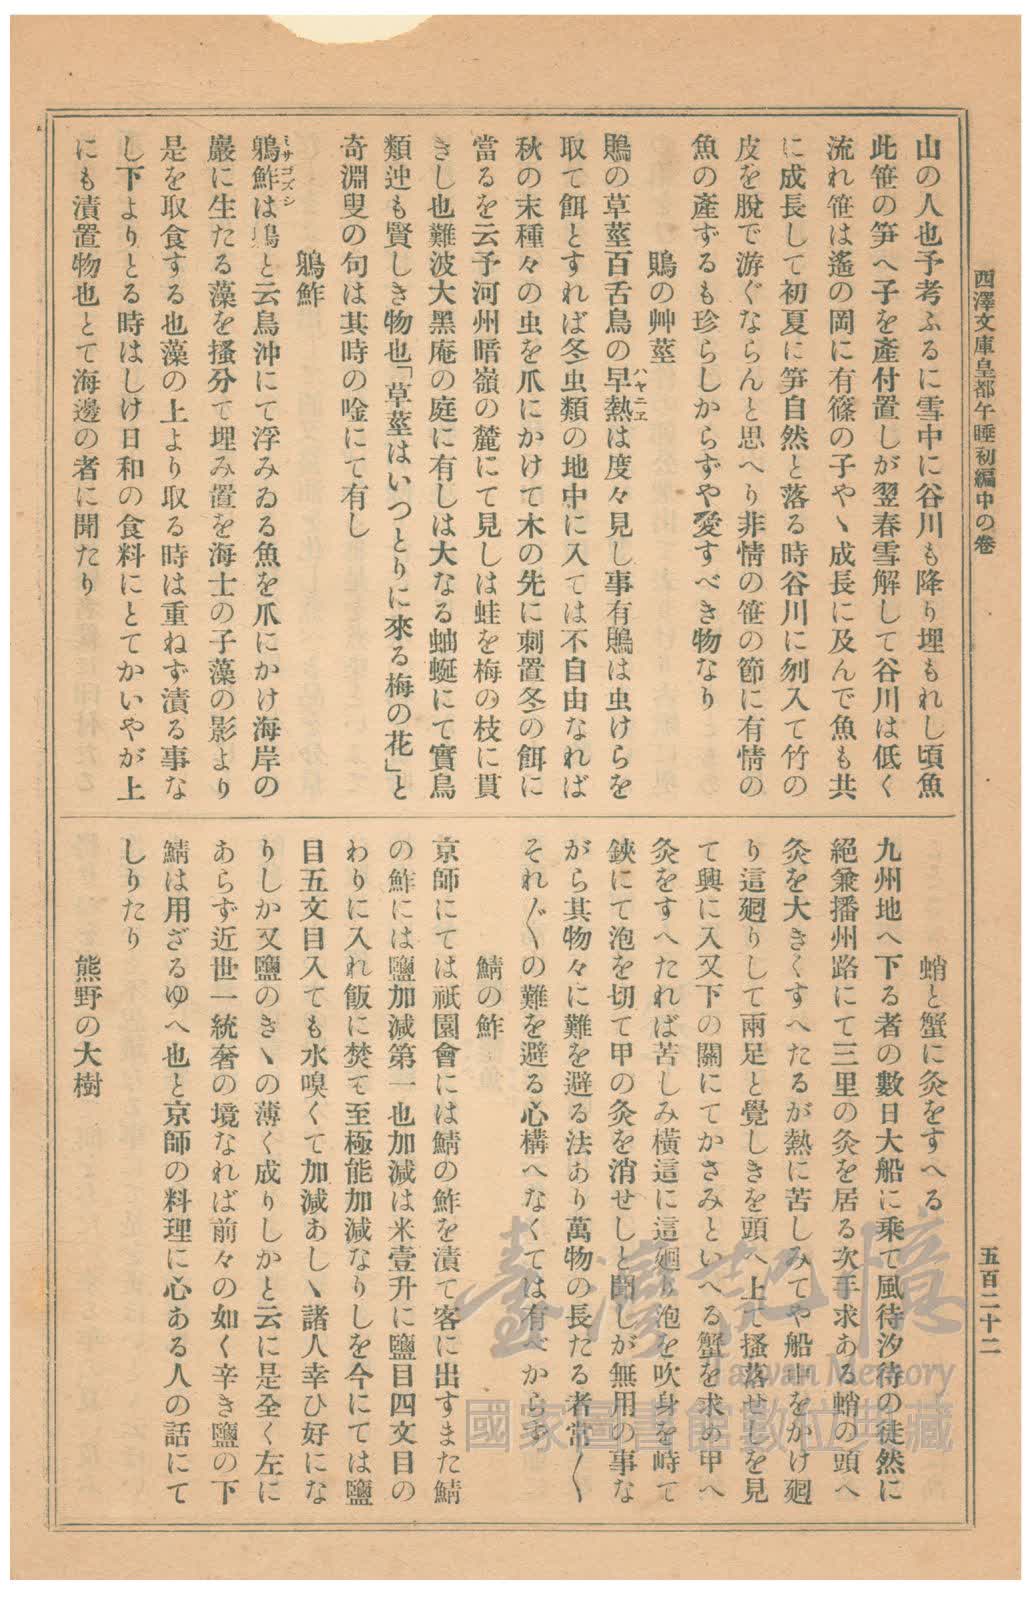 西澤文庫皇都午睡初編中の卷
五百二十二
山の人也予考ふるに雪中に谷川も降り埋もれし頃魚
此笹の笋へ子を產付置しが翌春雪解して谷川は低く
流れ笹は遙の岡に有篠の子やゝ成長に及んで魚も共
に成長して初夏に笋自然と落る時谷川に刎入て竹の
皮を脫で游ぐならんと思へり非情の笹の節に有情の
魚の產ずるも珍らしからずや愛すべき物なり
鵙の艸莖
鵙の草莖百舌鳥の早熱は度々見し事有鵙は虫けらを
ハヤニヱ
取て餌とすれば冬虫類の地中に入ては不自由なれば
秋の末種々の虫を爪にかけて木の先に刺置冬の餌に
當るを云予河州暗嶺の麓にて見しは蛙を梅の枝に貫
きし也難波大黑庵の庭に有しは大なる蚰蜒にて實鳥
類迚も賢しき物也「草莖はいつとりに來る梅の花」と
奇淵叟の句は其時の唫にて有し
鵙鮓
鵙鮓は鵙と云鳥沖にて浮みゐる魚を爪にかけ海岸の
ミサゴズシ
巖に生たる藻を搔分て埋み置を海士の子藻の影より
是を取食する也藻の上より取る時は重ねず漬る事な
し下よりとる時はしけ日和の食料にとてかいやが上
にも漬置物也とて海邊の者に聞たり
蛸と蟹に灸をすへる
九州地へ下る者の數日大船に乘て風待汐待の徒然に
絕兼播州路にて三里の灸を居る次手求ある蛸の頭へ
灸を大きくすへたるが熱に苦しみてや船中をかけ廻
り這廻りして兩足と覺しきを頭へ上て搔落せしを見
て興に入又下の關にてかさみといへる蟹を求め甲へ
灸をすへたれば苦しみ橫這に這廻り泡を吹身を峙て
鋏にて泡を切て甲の灸を消せしと聞しが無用の事な
がら其物々に難を避る法あり萬物の長たる者常〱
それ〲の難を避る心構へなくては有べからず
鯖の鮓
京師にては祇園會には鯖の鮓を漬て客に出すまた鯖
の鮓には鹽加減第一也加減は米壹升に鹽目四文目の
わりに入れ飯に焚て至極能加減なりしを今にては鹽
目五文目入ても水嗅くて加減あしゝ諸人幸ひ好にな
りしか又鹽のきゝの薄く成りしかと云に是全く左に
あらず近世一統奢の境なれば前々の如く辛き鹽の下
鯖は用ざるゆへ也と京師の料理に心ある人の話にて
しりたり
熊野の大樹
臺灣記憶
Taiwan Memory
國家圖書館數位典藏